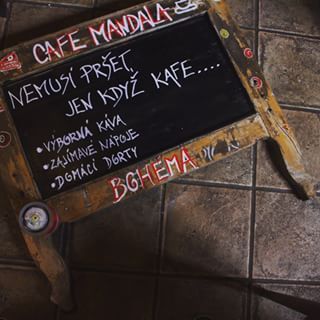 CAFE MANDALA
NEMUSÍ PRŠET,
JEN KDYŽ KAFE....
•VÝBORNÁ KÁVA
•ZAJÍMAVÉ NÁPOJE
•DOMÁCÍ DORTY
BOHEMA